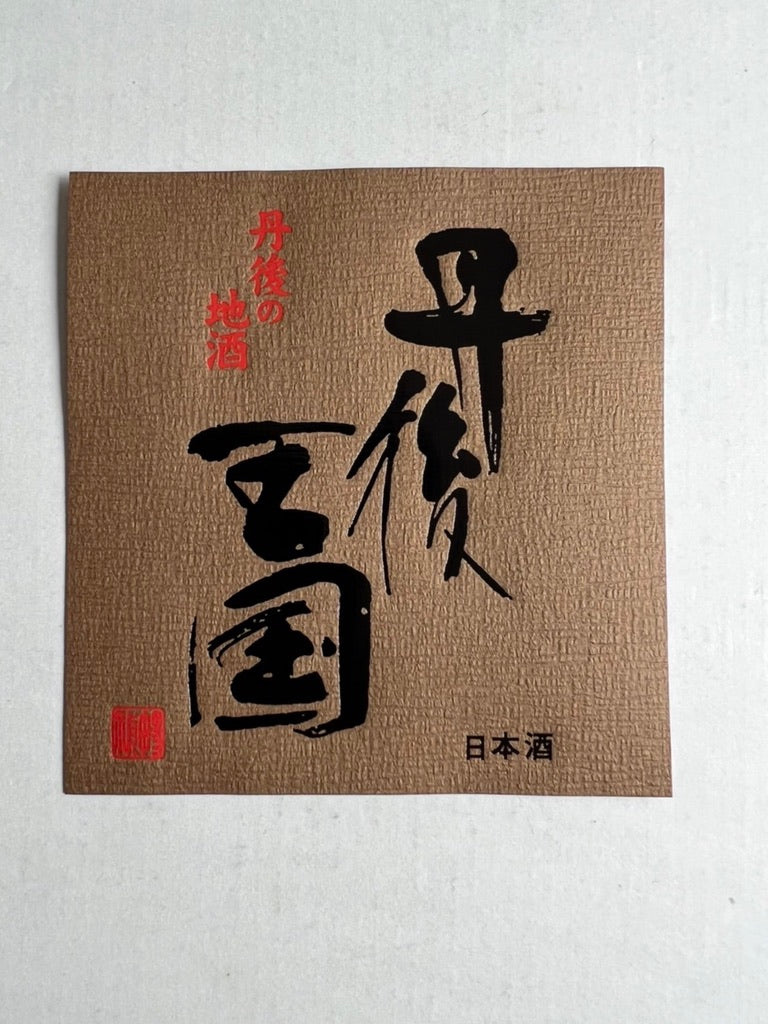 丹後
王国
丹後の
地酒
日本酒